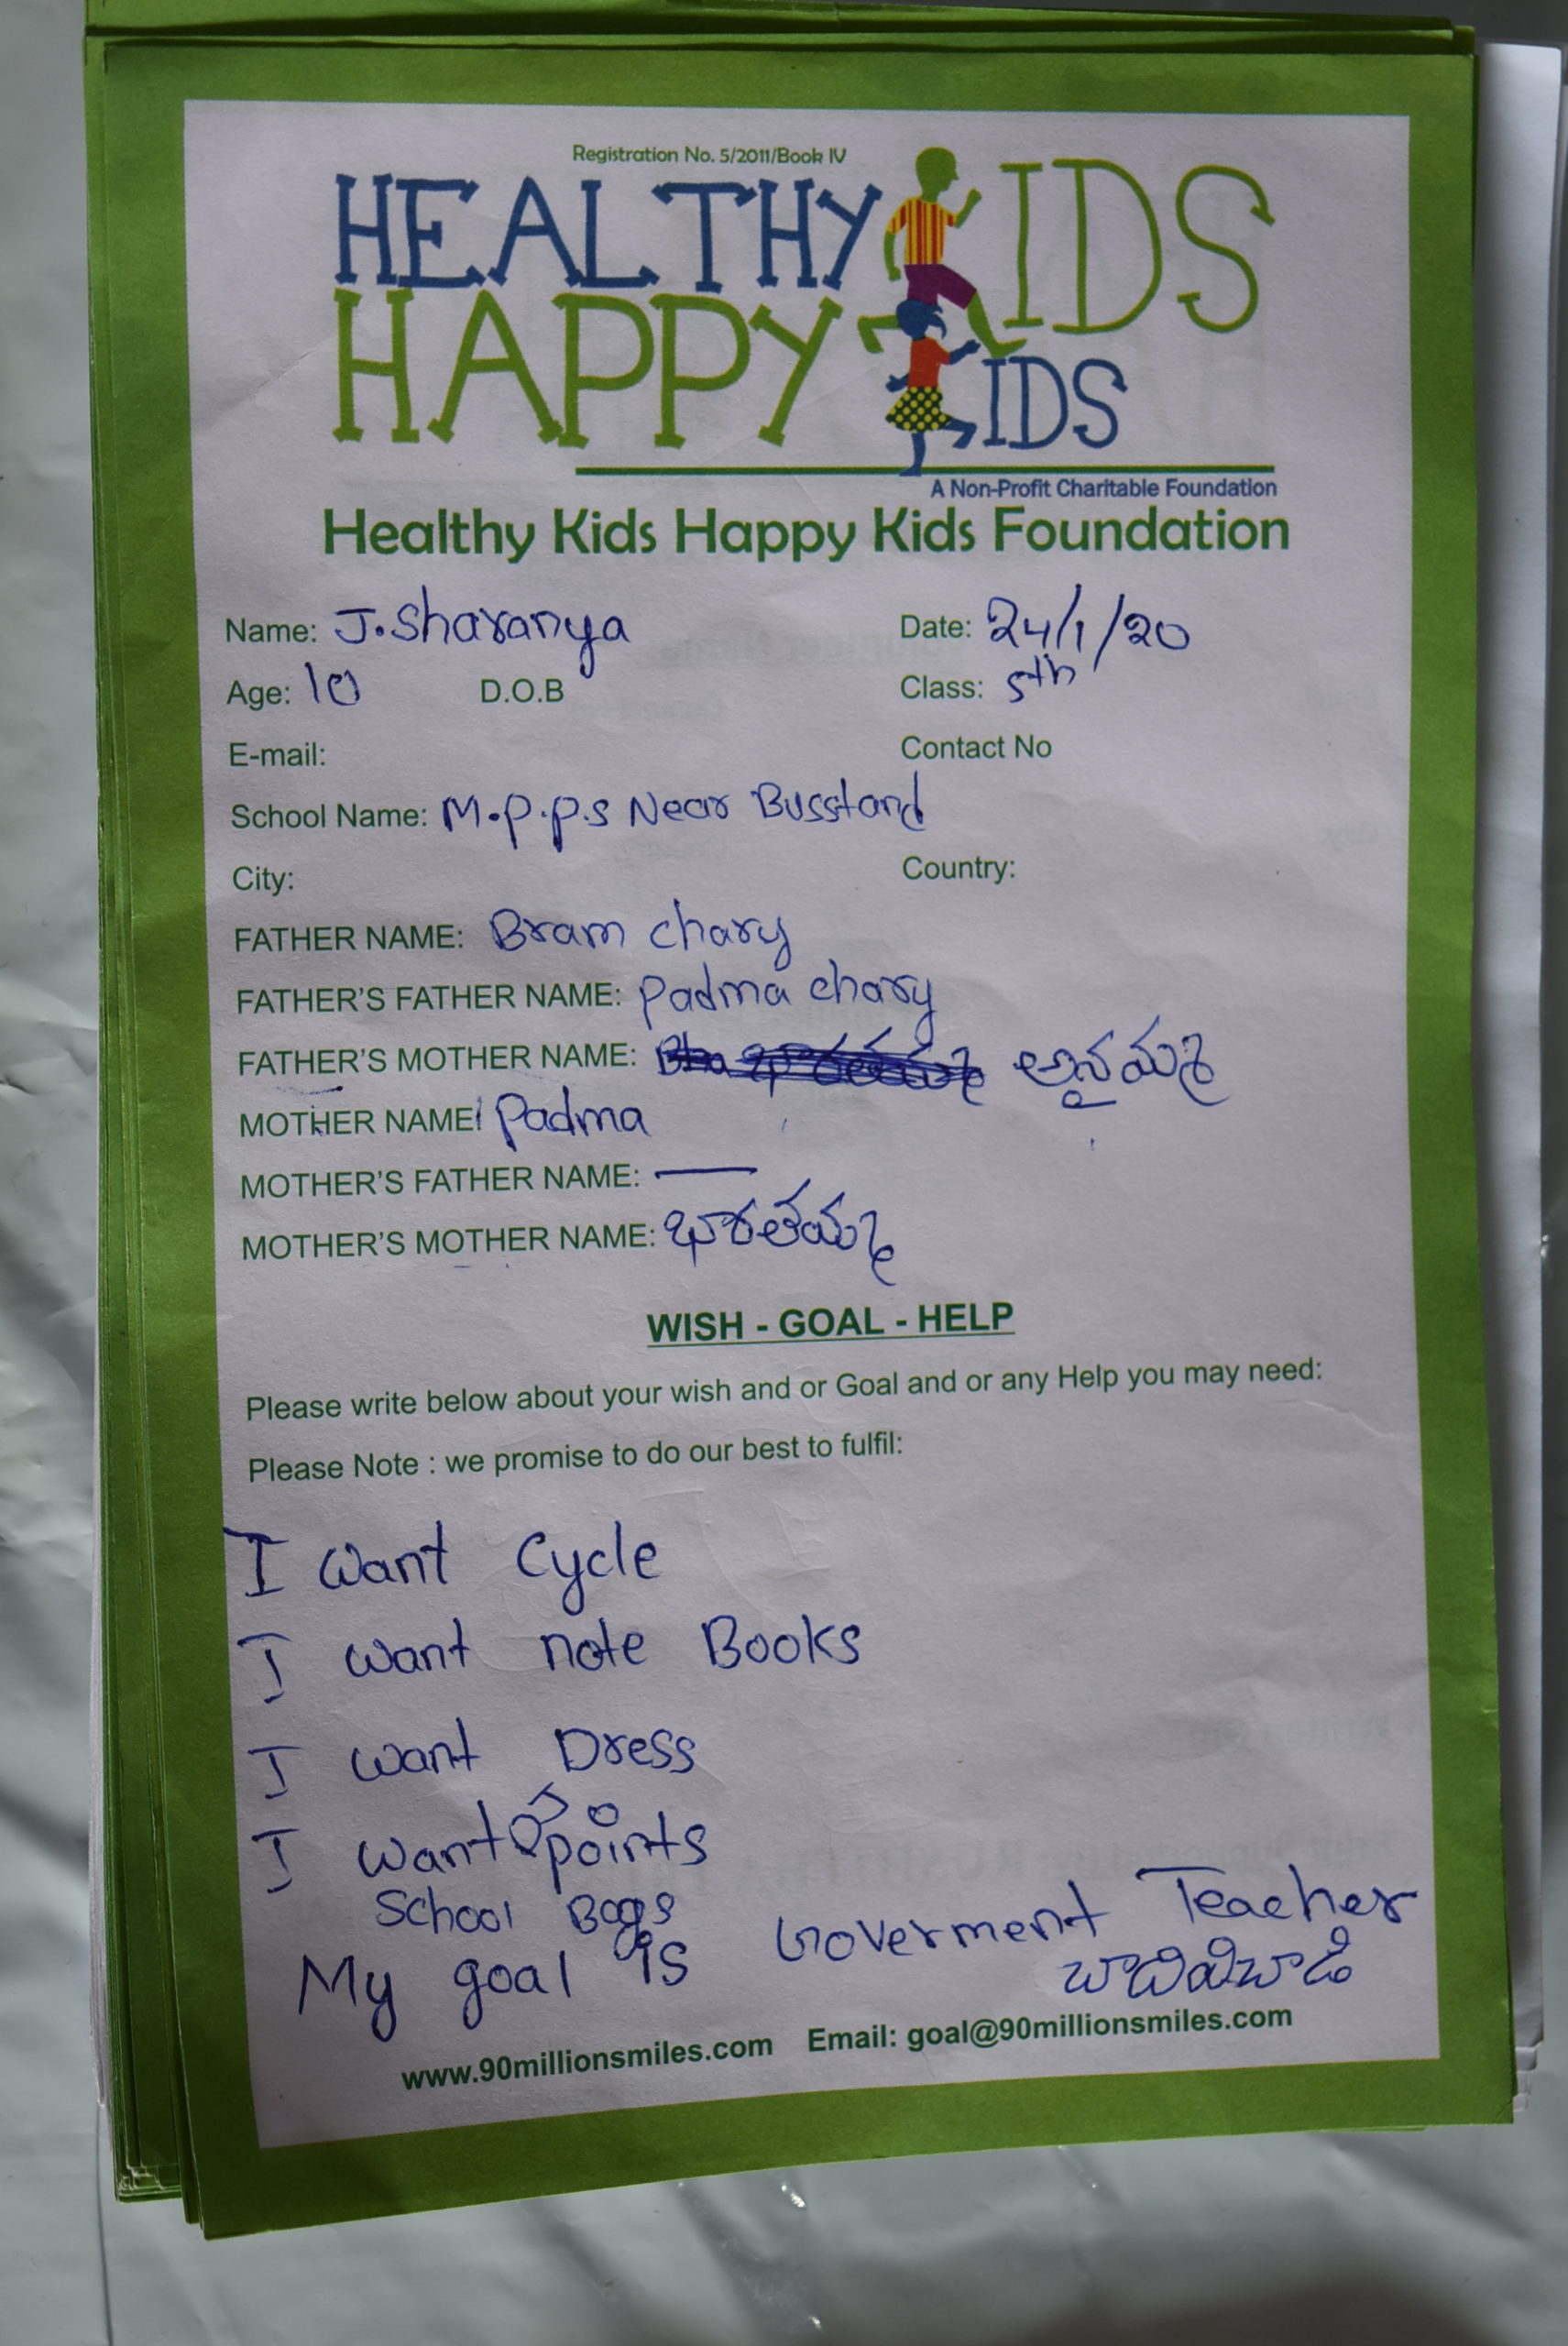 Registration No. 5/2011/Book IV
HEALTHY KIDS
HAPPY KIDS
A Non-Profit Charitable Foundation
Healthy Kids Happy Kids Foundation
Name: J.Sharanya Date: 24/1/20
Age: 10 D.O.B Class: 5th
E-mail: Contact No
School Name: M.p.p.s Near Busstand
City: Country:
FATHER NAME: Bram chary
FATHER'S FATHER NAME: Padma chary
FATHER'S MOTHER NAME: అనైమ్మ
MOTHER NAME: Padma
MOTHER'S FATHER NAME: —
MOTHER'S MOTHER NAME: భారతమ్మ
WISH - GOAL - HELP
Please write below about your wish and or Goal and or any Help you may need:
Please Note : we promise to do our best to fulfil:
I want Cycle
I want note Books
I want Dress
I want points
School Bags
My goal is Goverment Teacher
www.90millionsmiles.com Email: goal@90millionsmiles.com